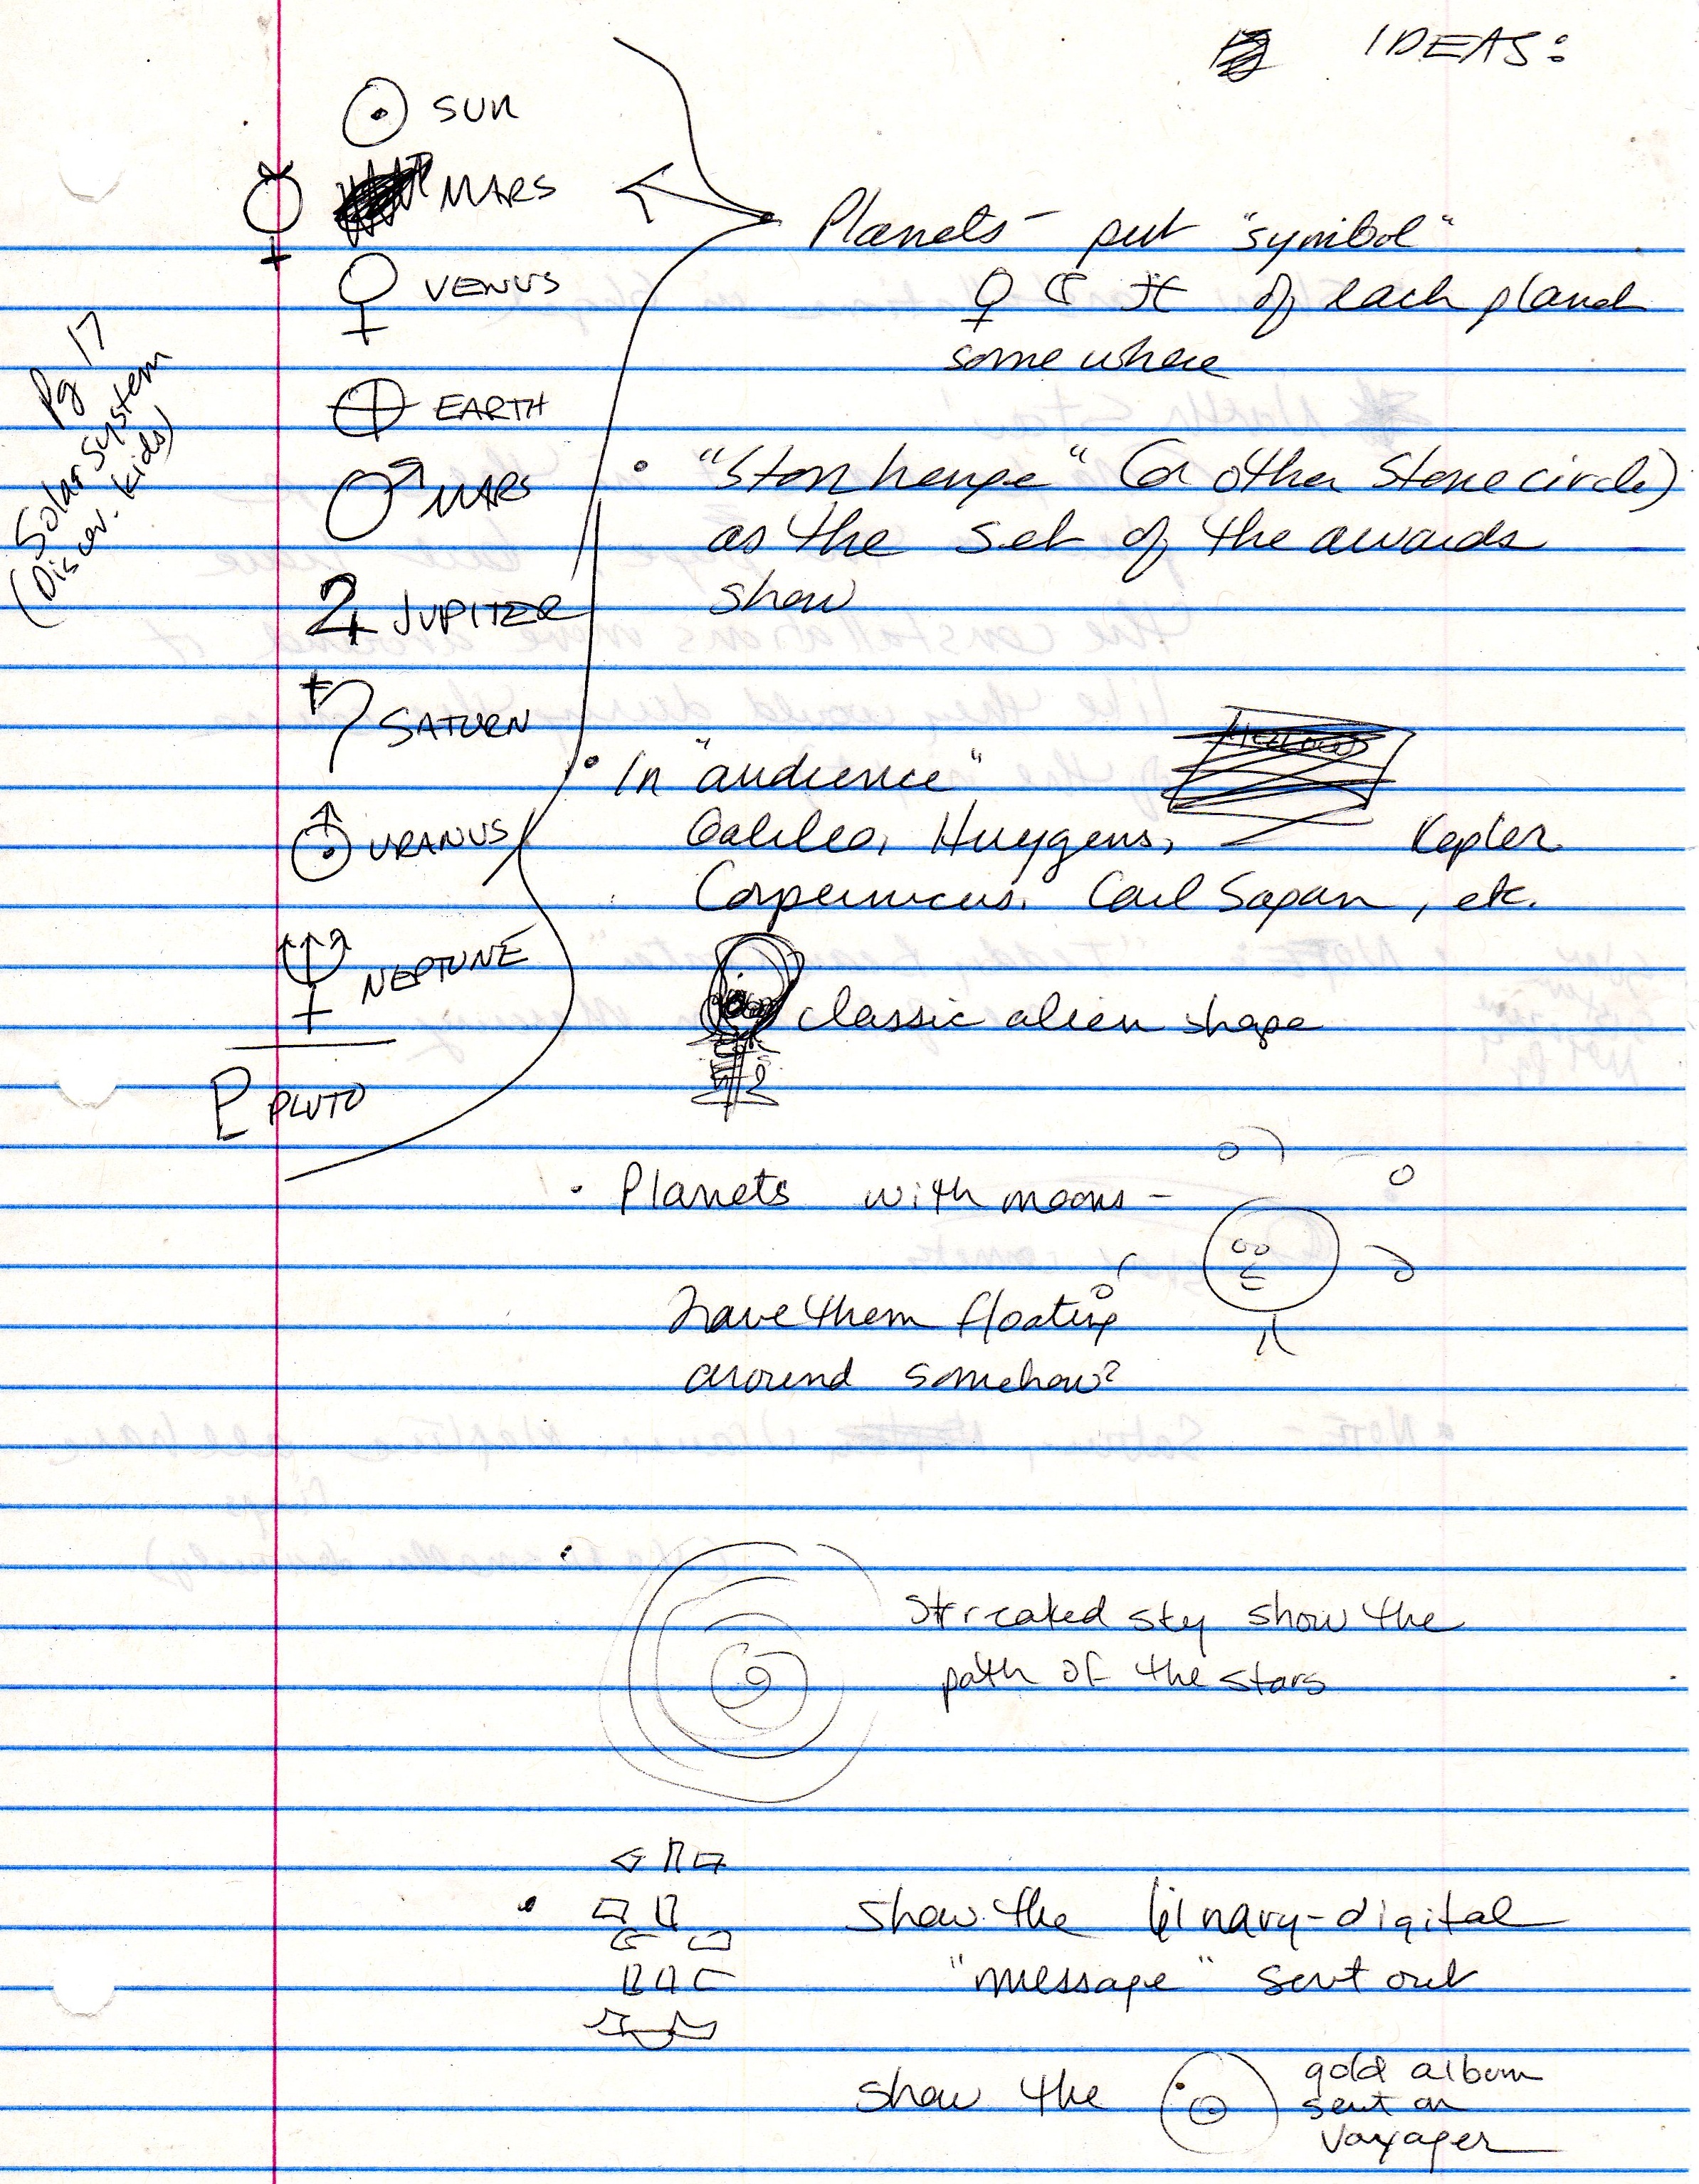 IDEAS:
☉ SUN
☿ MARS
♀ VENUS
EARTH
♂ MARS
♃ JUPITER
♄ SATURN
URANUS
♆ NEPTUNE
PLUTO
Pg 17
Solar System
(Discov. kids)
Planets - put "symbol"
♀ of each planet
somewhere
• "Stonhenge" (or other Stone circle)
as the set of the awards
show
• In "audience"
Galileo, Huygens, Kepler
Corpernicus, Carl Sagan, etc.
classic alien shape
• Planets with moons -
have them floating
around somehow?
• Streaked sky show the
path of the stars
• show the binary-digital
"message" sent out
show the gold album
sent on
Voyager